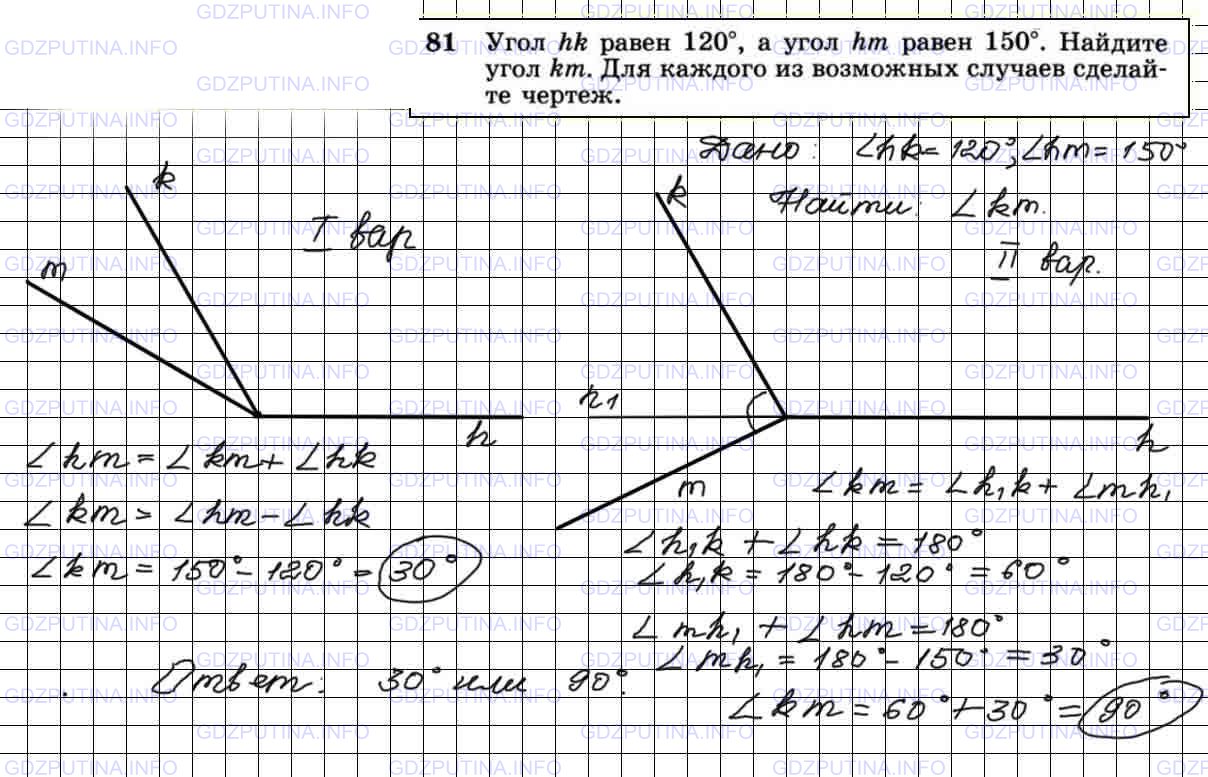 81 Угол hk равен 120°, а угол hm равен 150°. Найдите
угол km. Для каждого из возможных случаев сделай-
те чертеж.
Дано: ∠hk = 120°, ∠hm = 150°
Найти: ∠km.
I вар
k
m
h
∠hm = ∠km + ∠hk
∠km = ∠hm − ∠hk
∠km = 150° − 120° = 30°
II вар.
k
h1
m
h
∠km = ∠h₁k + ∠mh₁
∠h₁k + ∠hk = 180°
∠h₁k = 180° − 120° = 60°
∠mh₁ + ∠hm = 180°
∠mh₁ = 180° − 150° = 30°
∠km = 60° + 30° = 90°
Ответ: 30° или 90°.
GDZPUTINA.INFO